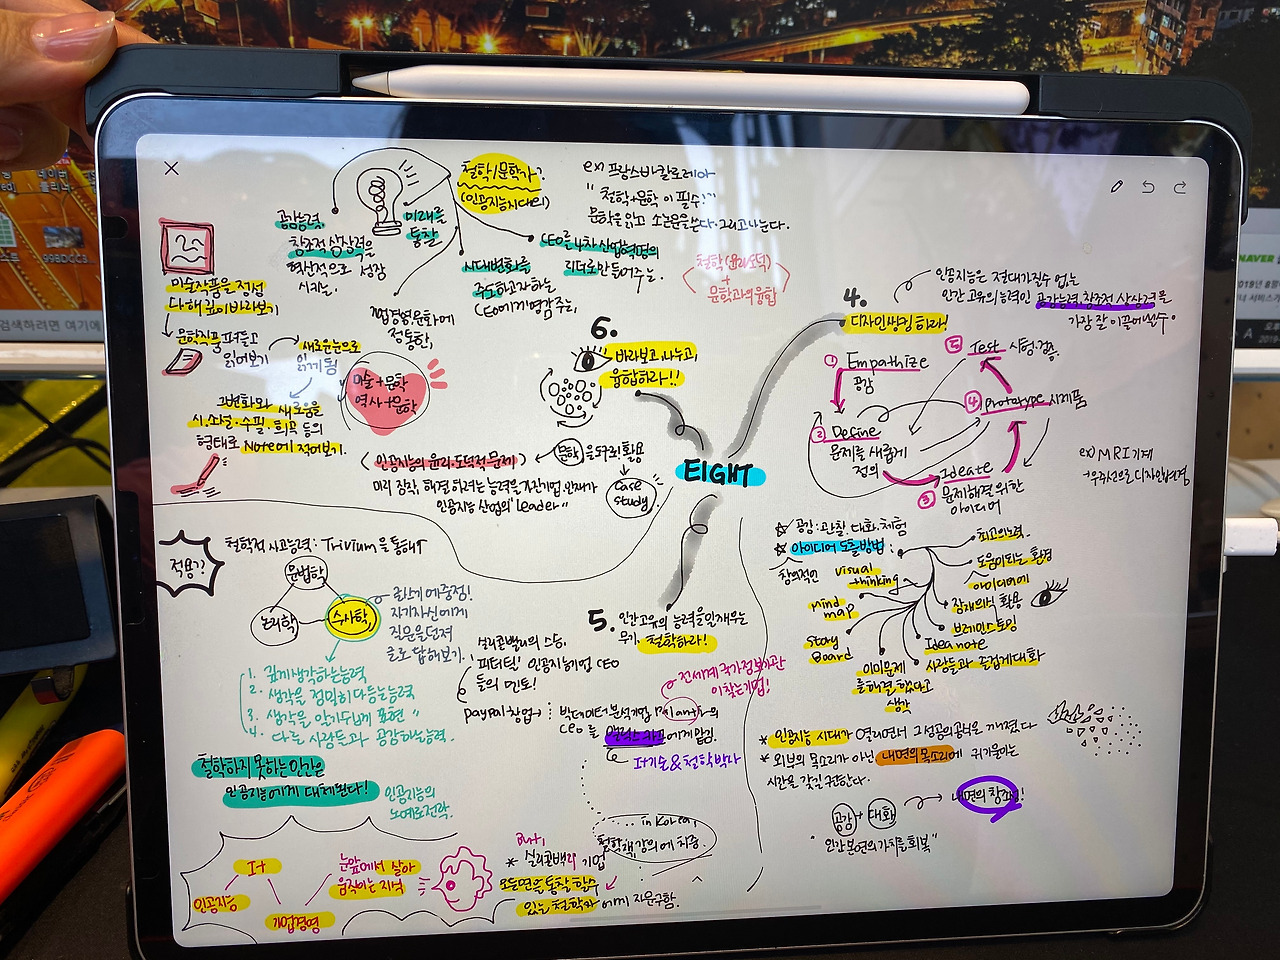 철학/문학가?
(인공지능시대의)
ex) 프랑스 바칼로레아
"철학+문학이 필수!"
문학을 읽고 소논문을 쓴다. 그리고 나눈다.
공감능력,
창조적 상상력을
혁신적으로 성장
시키는.
미래를
통찰
CEO를 4차 산업혁명의
리더로 만들어주는.
시대변화를
주도하고자 하는
CEO에게 영감주는,
기업경영, 문화에
정통한,
철학(윤리,도덕)
+
문학과의 융합
미술작품을 정성
다해 깊이 바라보기
문학작품 펴들고
읽어보기
새로운 눈으로
읽게 됨
미술+문학
역사+문학
그 변화와 새로움을
시.소설.수필.희곡 등의
형태로 Note에 적어보기.
6.
바라보고, 나누고,
융합하라!!
문학을 도구로! 활용
case
study.
(인공지능의 윤리.도덕적 문제)
미리 장착, 해결하려는 능력을 가진 기업, 인재가
인공지능 산업의 "leader"
EIGHT
4.
디자인씽킹 하라!
인공지능은 절대 가질 수 없는,
인간 고유의 능력인 공감능력, 창조적 상상력을
가장 잘 이끌어낼 수
① Empathize
공감
② Define
문제를 새롭게
정의
③ Ideate
문제해결 위한
아이디어
④ Prototype 시제품
⑤ Test 시험.검증.
ex) MRI 기계
→우주선으로 디자인 변경
☆ 공감: 관찰. 대화. 체험
☆ 아이디어 도출방법:
창의적인
visual
thinking
mind
map
story
Board
이미 문제
를 해결했다고
생각
최고의 노력.
도움이 되는 환경
아이디어에
잠재의식 활용
브레인스토밍
Idea note
사람들과 즐겁게 대화
* 인공지능 시대가 열리면서 그 성공의 공식은 깨졌다
* 외부의 목소리가 아닌 내면의 목소리에 귀 기울이는
시간을 갖길 권한다.
공감 + 대화
내면의 창조!
"인간 본연의 가치를 회복"
5.
인간 고유의 능력을 일깨우는
무기. 철학하라!
실리콘밸리의 스승,
피터틸! 인공지능 기업 CEO
들의 멘토!
paypal 창업→
빅데이터 분석기업 Palantir의
CEO를 알렉스 카프에게 맡김.
전세계 국가정보기관
이 찾는 기업!
It기술 & 철학박사
... in Korea,
철학책 강의에 치중.
But,
* 실리콘밸리 기업
모든 면을 통찰할 수
있는 철학자에게 자문 구함.
적용?
철학적 사고능력: Trivium을 통해서
문법학
논리학
수사학
글쓰기에 중점!
자기자신에게
질문을 던져
글로 답해보기.
1. 깊게 생각하는 능력
2. 생각을 정밀히 다듬는 능력
3. 생각을 알기 쉽게 표현 "
4. 다른 사람들과 공감하는 능력.
철학하지 못하는 인간은
인공지능에게 대체된다!
인공지능의
노예로 전락.
It
인공지능
기업경영
눈앞에서 살아
움직이는 지식